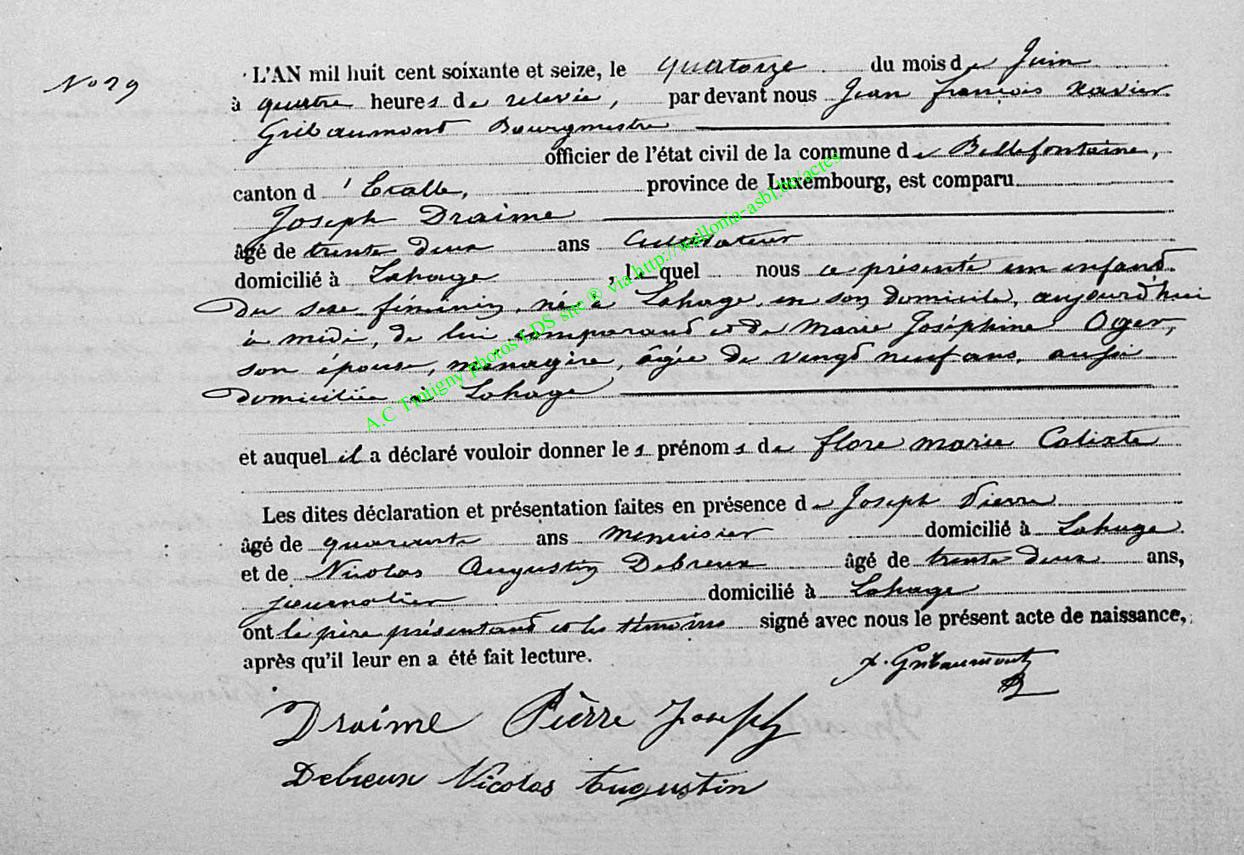 No 29
L'AN mil huit cent soixante et seize, le quatorze du mois de Juin
à quatre heures de relevée, par devant nous Jean françois Xavier
Gribaumont Bourgmestre
officier de l'état civil de la commune de Bellefontaine,
canton d'Etalle, province de Luxembourg, est comparu
Joseph Draime
âgé de trente deux ans Cultivateur
domicilié à Lahage, le quel nous a présenté un enfant
du sexe féminin, né à Lahage, en son domicile, aujourd'hui
à midi, de lui comparant et de Marie Joséphine Oger,
son épouse, ménagère, âgée de vingt neuf ans, aussi
domiciliée à Lahage
et auquel il a déclaré vouloir donner les prénoms de flore marie Calixte
Les dites déclaration et présentation faites en présence de Joseph Pierre
âgé de quarante ans menuisier domicilié à Lahage
et de Nicolas Augustin Debreux âgé de trente deux ans,
journalier domicilié à Lahage
ont le père présentant et les témoins signé avec nous le présent acte de naissance,
après qu'il leur en a été fait lecture.
x. Gribaumont
Draime Pièrre Joseph
Debreux Nicolas Augustin
A.C Tintigny photos LDS site © via http://wellonia-asbl.be/actes